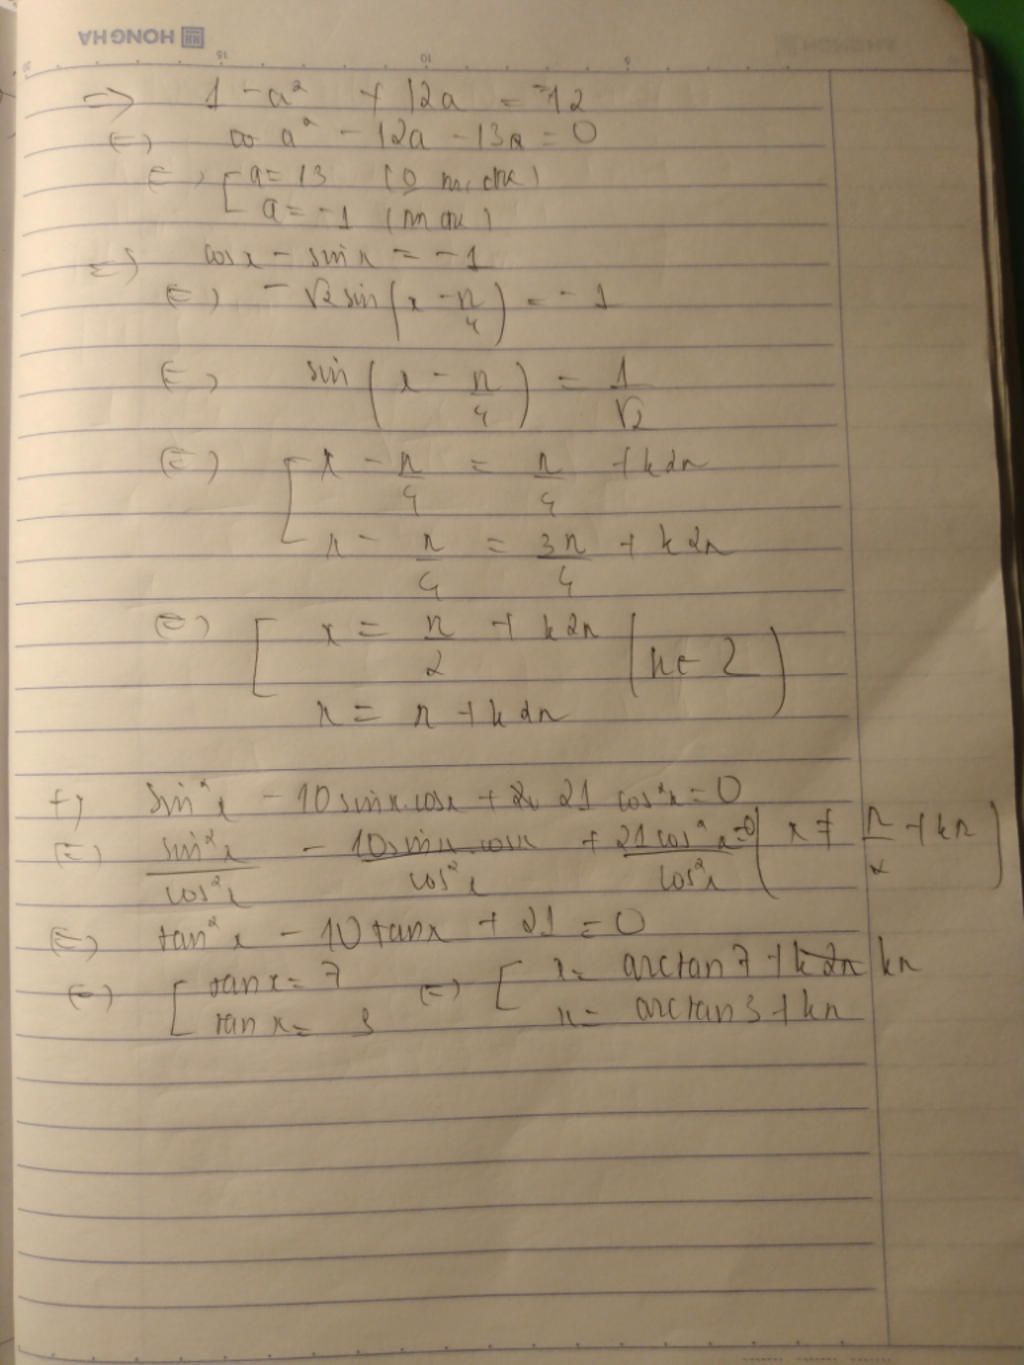 HONG HA
=> 1 - a² + 12a = -12
<=> a² - 12a - 13 = 0
<=> [ a = 13 (0 m, đk)
a = -1 (m đk)
<=> cosx - sinx = -1
<=> -√2 sin(x - π/4) = -1
<=> sin(x - π/4) = 1/√2
<=> [ x - π/4 = π/4 + k2π
x - π/4 = 3π/4 + k2π
<=> [ x = π/2 + k2π (k ∈ Z)
x = π + k2π
f) sin²x - 10 sinx.cosx + 21 cos²x = 0
<=> sin²x/cos²x - 10 sinx.cosx/cos²x + 21 cos²x/cos²x = 0 (x ≠ π/2 + kπ)
<=> tan²x - 10 tanx + 21 = 0
<=> [ tanx = 7 <=> [ x = arctan 7 + kπ
tan x = 3 x = arctan 3 + kπ